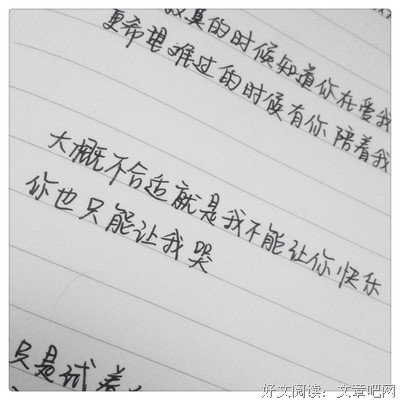 寂寞的时候知道你在爱我
更希望难过的时候有你陪着我
大概不合适就是我不能让你快乐
你也只能让我哭
只是试着
好文阅读：文章吧网